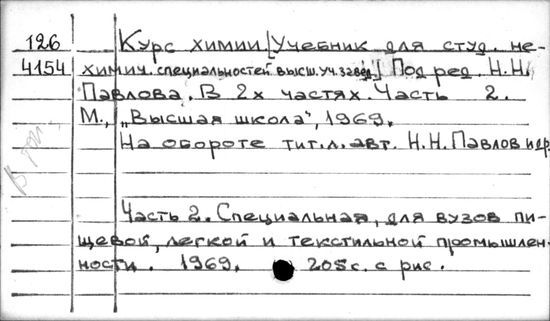 126 Курс химии [Учебник для студ. не-
4154 химич. специальностей высш. уч. завед.] Под ред. Н.Н.
Павлова. В 2х частях. Часть 2.
М., „Высшая школа", 1969.
На обороте тит. л. авт. Н.Н. Павлов и др.
Часть 2. Специальная, для вузов пи-
щевой, легкой и текстильной промышлен-
ности. 1969. 205 с. с рис.